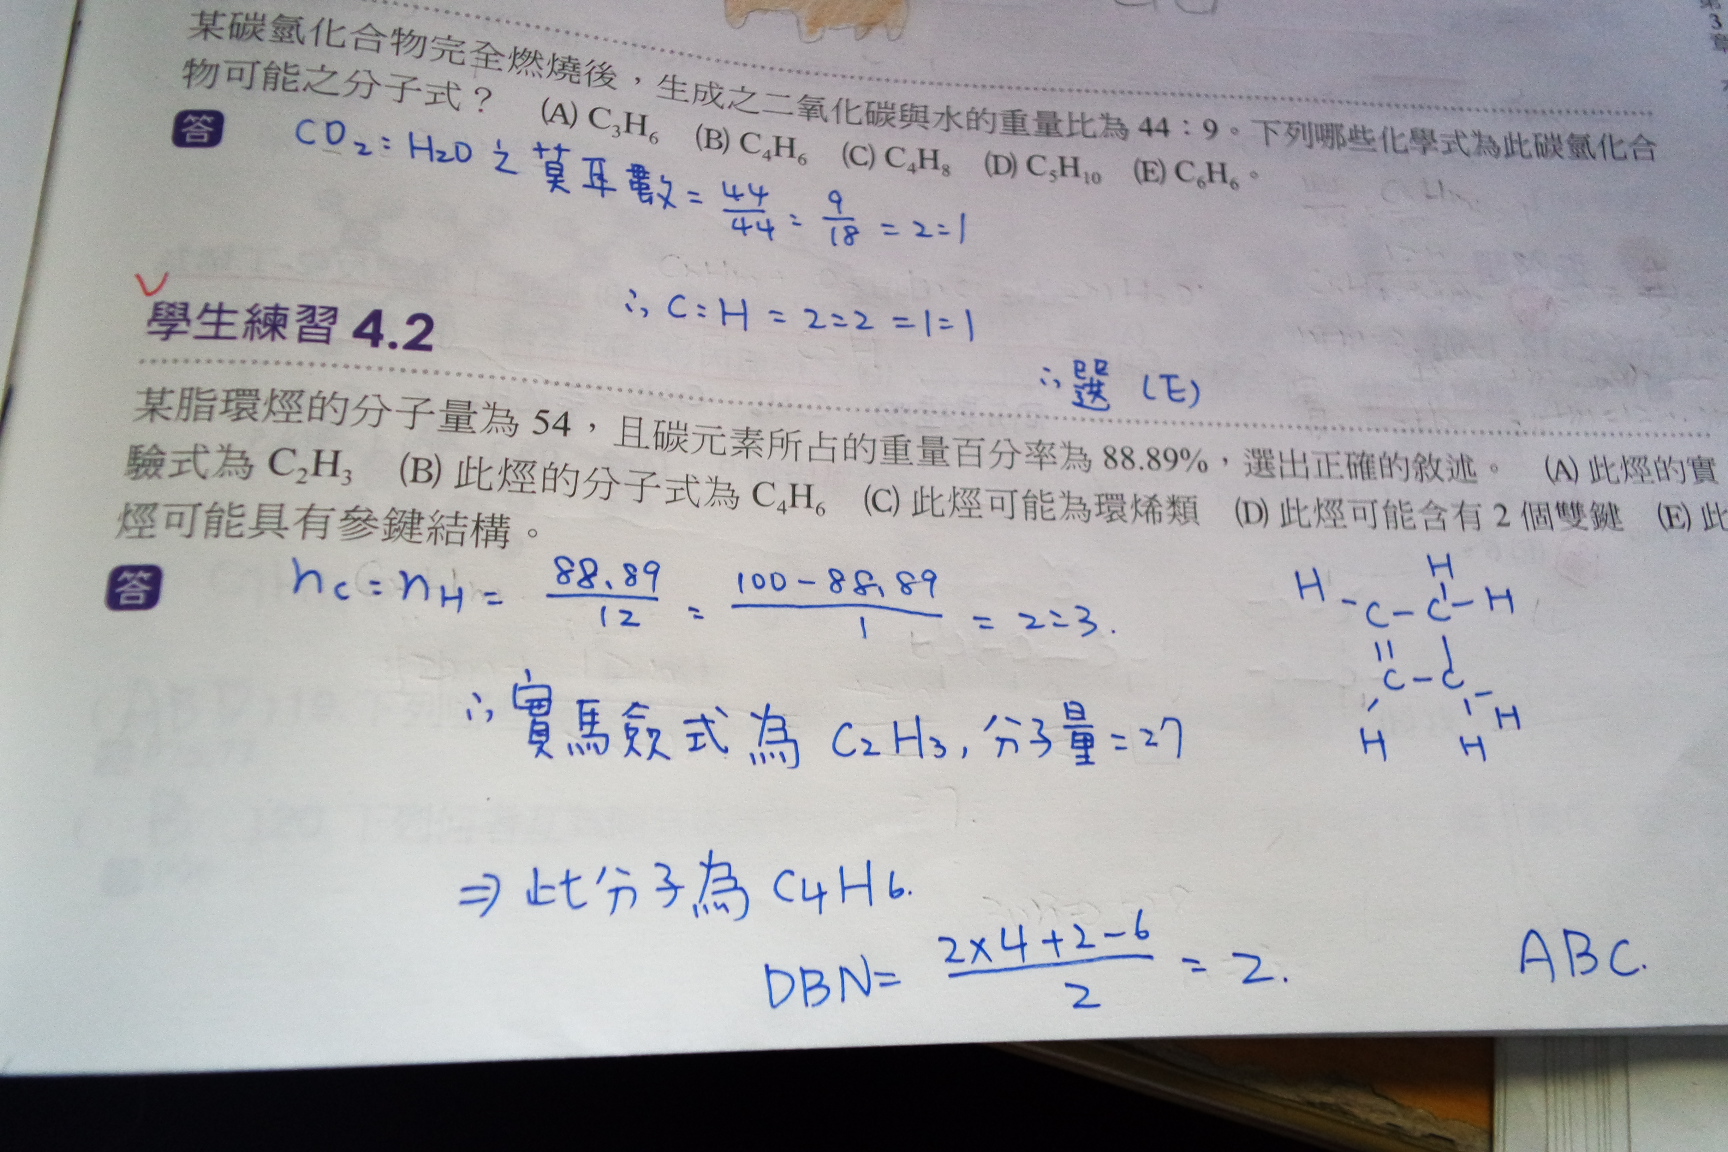 某碳氫化合物完全燃燒後，生成之二氧化碳與水的重量比為 44：9。下列哪些化學式為此碳氫化合
物可能之分子式？ (A) C₃H₆ (B) C₄H₆ (C) C₄H₈ (D) C₅H₁₀ (E) C₆H₆。
答 CO₂:H₂O 之莫耳數=44/44:9/18=2:1
∴C:H=2:2=1:1
∴選(E)
學生練習 4.2
某脂環烴的分子量為 54，且碳元素所占的重量百分率為 88.89%，選出正確的敘述。 (A) 此烴的實
驗式為 C₂H₃ (B) 此烴的分子式為 C₄H₆ (C) 此烴可能為環烯類 (D) 此烴可能含有 2 個雙鍵 (E) 此
烴可能具有參鍵結構。
答 nC:nH=88.89/12:100-88.89/1=2:3.
H
H-C-C-H
C-C-H
H H
∴實驗式為 C₂H₃,分子量=27
⇒此分子為 C₄H₆.
DBN=2×4+2-6/2=2.
ABC.
第
3
章